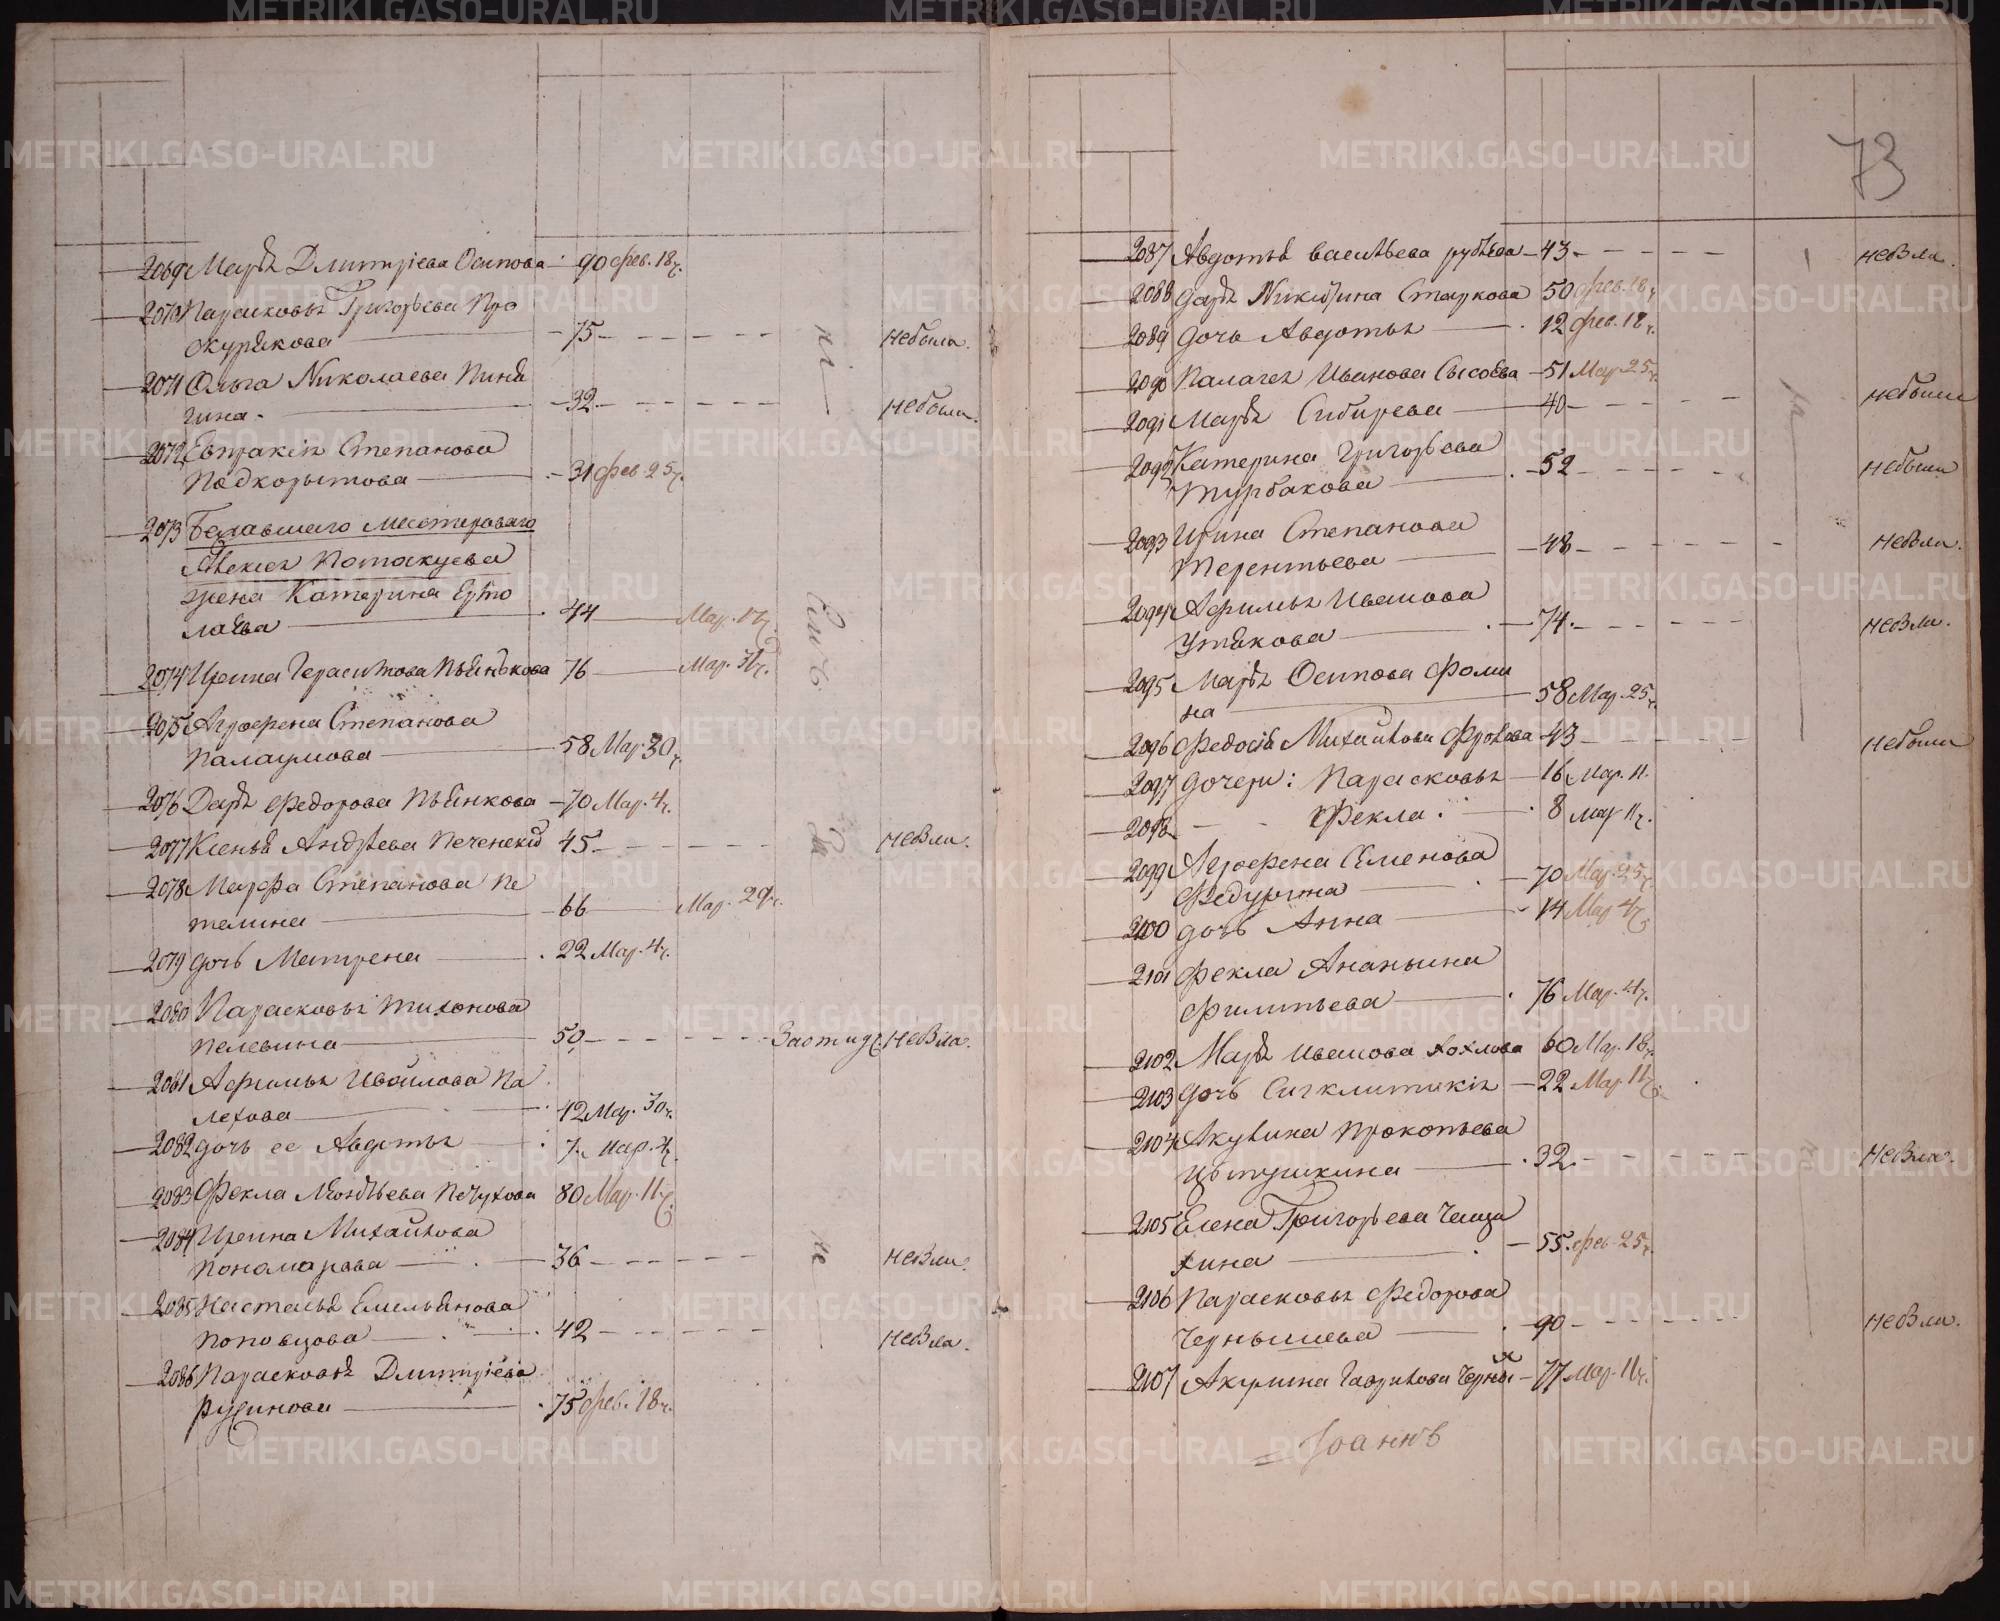 2069 Марья Дмитріева Осипова 90 фев. 18 ч.
2070 Парасковья Григорьева Про
скурякова 75 небыла.
2071 Ольга Николаева Пиня
гина 32 небыла.
2072 Евпраксія Степанова
Подкорытова 31 фев. 25 ч.
2073 мастероваго
Потаскуева
жена Катерина Ермо
лаева 44 Мар.
2074 Ирина Герасимова Пьянькова 76 Мар.
2075 Аграфена Степанова
58 Мар. 30 ч.
2076 Дарья Федорова Пьянкова 70 Мар. 4 ч.
2077 Ксенья Андреева 45 небыла.
2078 Марфа Степанова Пе
телина 66 Мар. 29 ч.
2079 дочь Матрена 22 Мар. 4 ч.
2080 Парасковья Тихонова
Пелевина 50 небыла.
2081 Афимья Па
лехова 42 Мар. 30 ч.
2082 дочь ее Авдотья 7 Мар. 4 ч.
2083 Фекла Печухова 80 Мар. 11 ч.
2084 Ирина Михайлова
Пономарева 36 небыла.
2085 Настасья Емельянова
Поповцова 42 небыла.
2086 Парасковья Дмитріева
Русинова 75 фев. 18 ч.
73
2087 Авдотья Васильева 43 небыла.
2088 Дарья Никитина Старкова 50 фев. 18 ч.
2089 дочь Авдотья 12 фев. 18 ч.
2090 Палагея Иванова Сысоева 51 Мар. 25 ч.
2091 Марья Сибирева 40 небыла
2092 Катерина Григорьева
Турбакова 52 небыла
2093 Ирина Степанова
Терентьева 48 небыла.
2094 Афимья Иванова
Утякова 74 небыла.
2095 Марья Осипова Фоми
на 58 Мар. 25 ч.
2096 Федосья Михайлова Фролова 43 небыла
2097 дочери: Парасковья 16 Мар. 11.
2098 Фекла 8 Мар 11 ч.
2099 Аграфена Семенова
70 Мар. 25 ч.
2100 дочь Анна 14 Мар 4 ч.
2101 Фекла Ананьина
Филипьева 76 Мар. 4 ч.
2102 Марья Иванова Хохлова 60 Мар. 18 ч.
2103 дочь Сигклитикія 22 Мар. 11 ч.
2104 Акулина Прокопьева
32 небыла.
2105 Елена Григорьева Чаща
хина 55 фев. 25 ч.
2106 Парасковья Федорова
Чернышева 90 небыла.
2107 Акулина Гаврилова 77 Мар. 11 ч.
Іоаннъ
METRIKI.GASO-URAL.RU